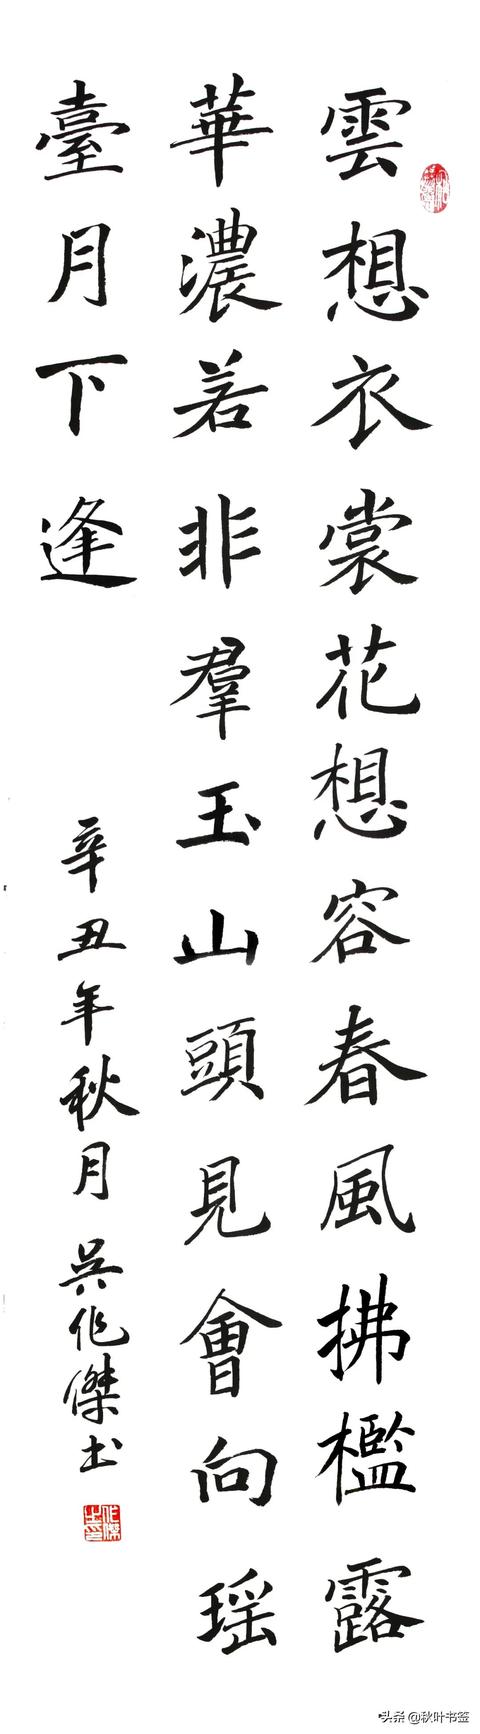 雲想衣裳花想容春風拂檻露
華濃若非羣玉山頭見會向瑶
臺月下逢
辛丑年秋月吴作傑书
头条 @秋叶书签